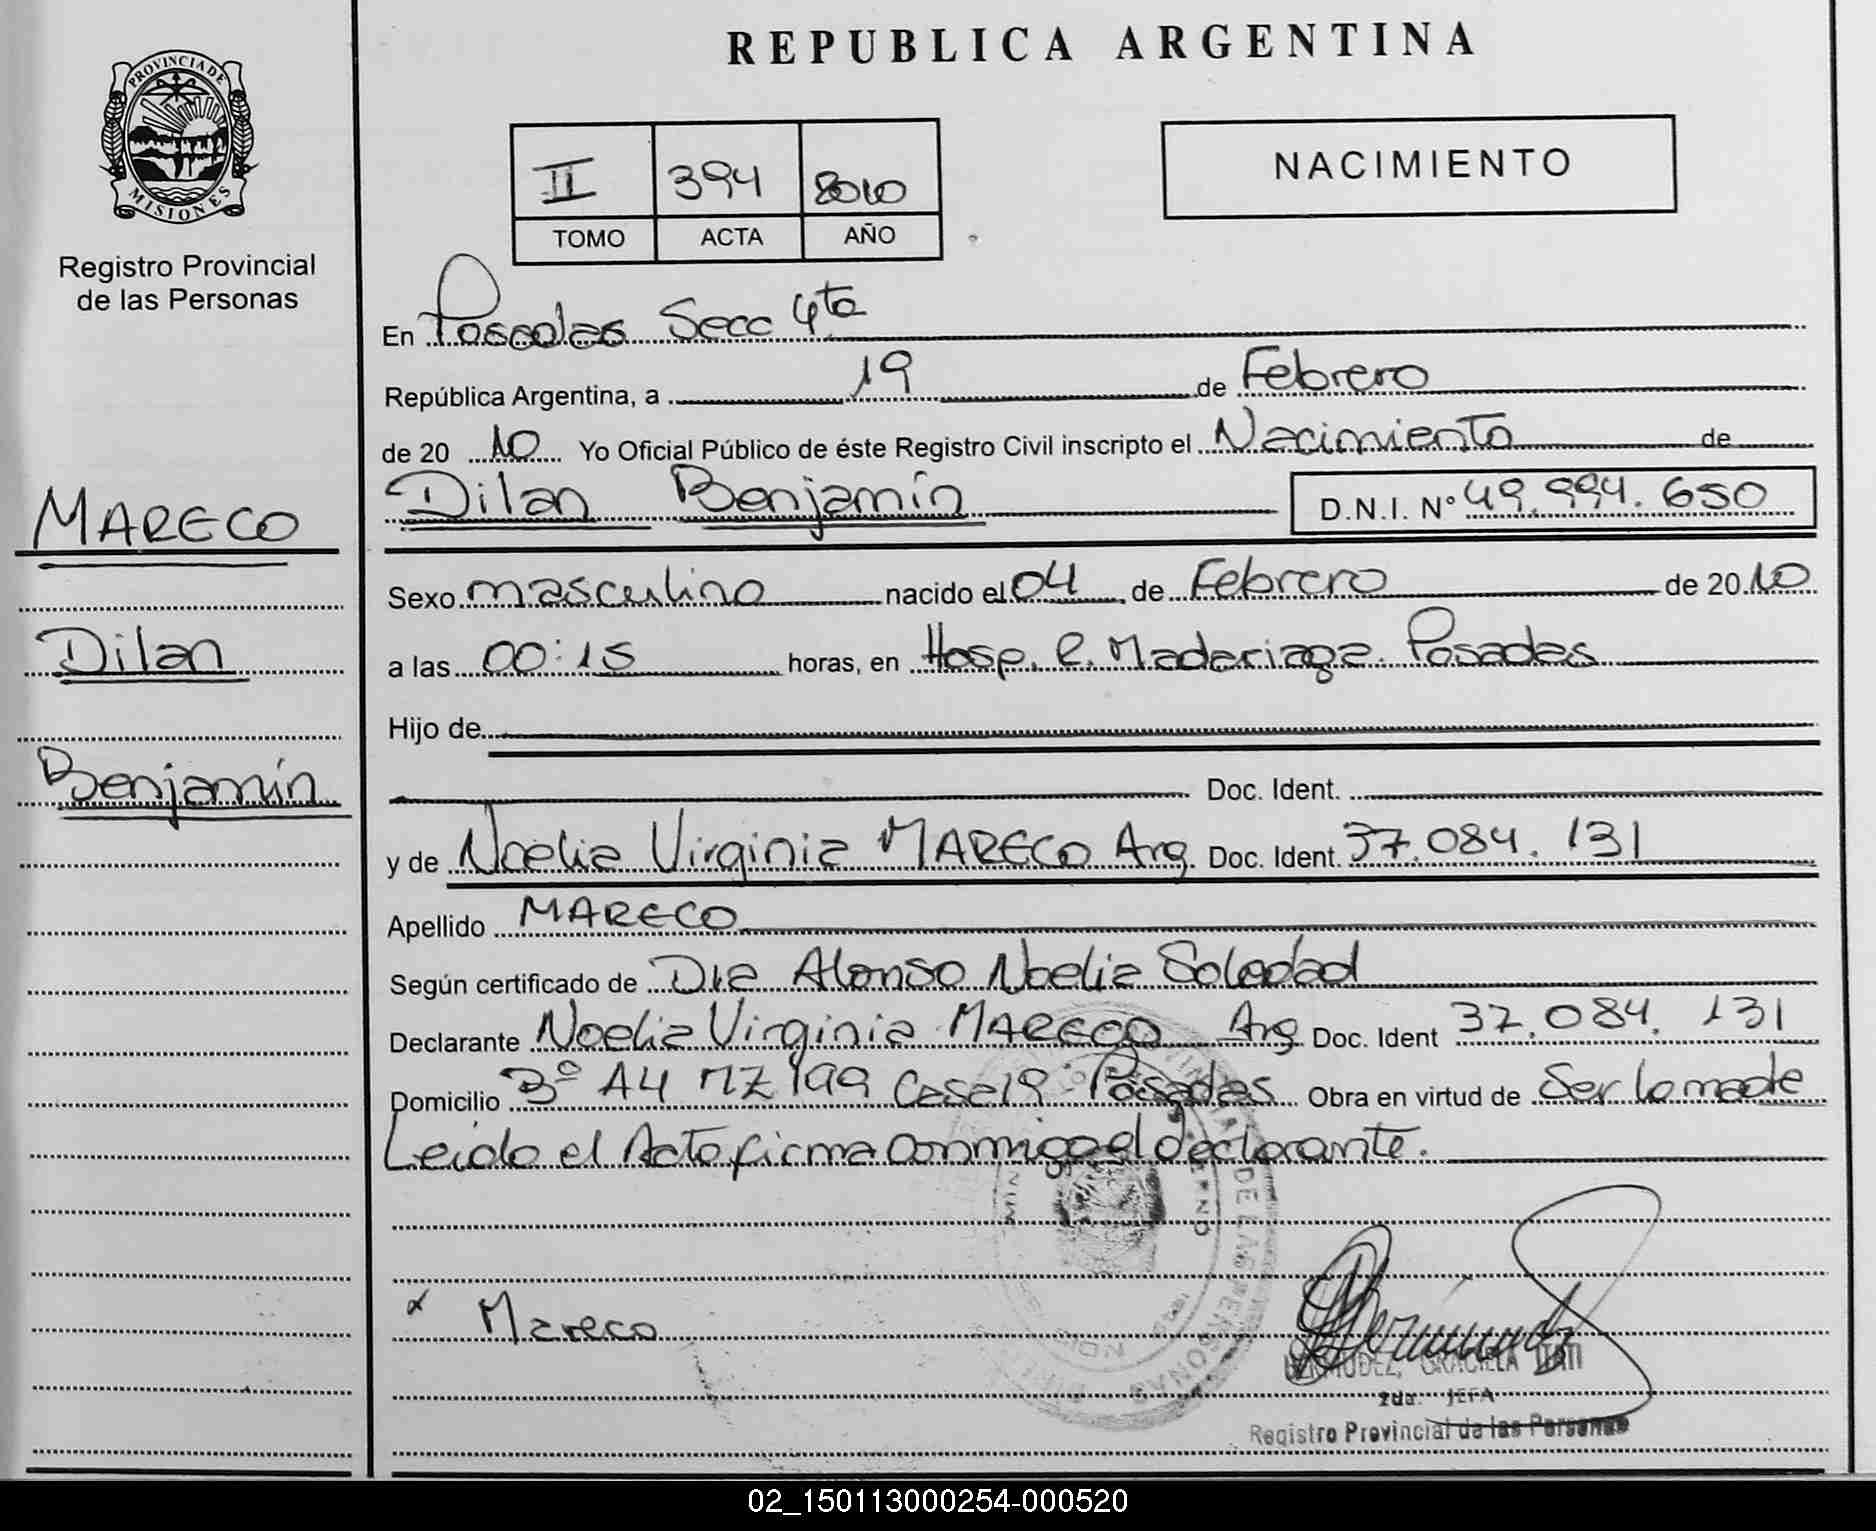 REPUBLICA ARGENTINA
PROVINCIA DE
MISIONES
Registro Provincial
de las Personas
II 394 2010
TOMO ACTA AÑO
NACIMIENTO
En Posadas Secc 4ta
República Argentina, a 19 de Febrero
de 20 10 Yo Oficial Público de éste Registro Civil inscripto el Nacimiento de
Dilan Benjamín D.N.I. Nº 49.994.650
MARECO
Dilan
Benjamín
Sexo masculino nacido el 04 de Febrero de 20 10
a las 00:15 horas, en Hosp. R. Madariaga. Posadas
Hijo de
Doc. Ident.
y de Noelia Virginia MARECO Arg. Doc. Ident. 37.084.131
Apellido MARECO
Según certificado de Dra Alonso Noelia Soledad
Declarante Noelia Virginia MARECO Arg Doc. Ident 37.084.131
Domicilio Bº A4 MZ 199 Casa 19 Posadas Obra en virtud de Ser la madre
Leído el Acta firma conmigo el declarante.
DE LAS PERSONAS
Mareco
BERMUDEZ, GRACIELA ITATI
2da. JEFA
Registro Provincial de las Personas
02_150113000254-000520